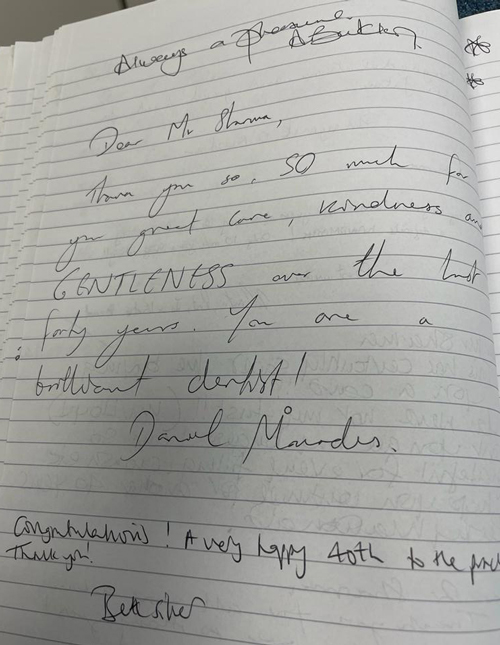 Always a pleasure.
Dear Mr Sharma,
Thank you so, SO much for
your great care, kindness and
GENTLENESS over the last
forty years. You are a
brilliant dentist!
Daniel
Congratulations! A very happy 40th to the
Thank you!